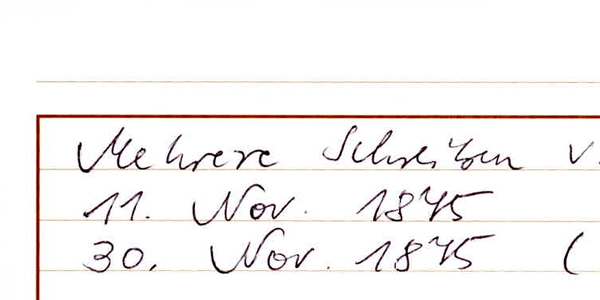 Mehrere Schreiben v.
11. Nov. 1845
30. Nov. 1845 (